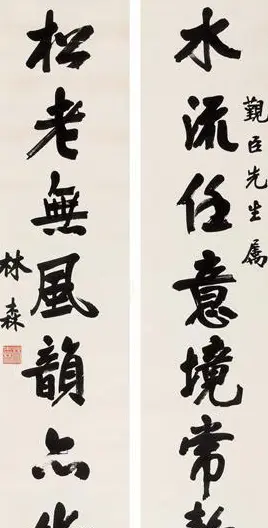 覲臣先生屬
水流任意境常
松老無風韻亦
林森